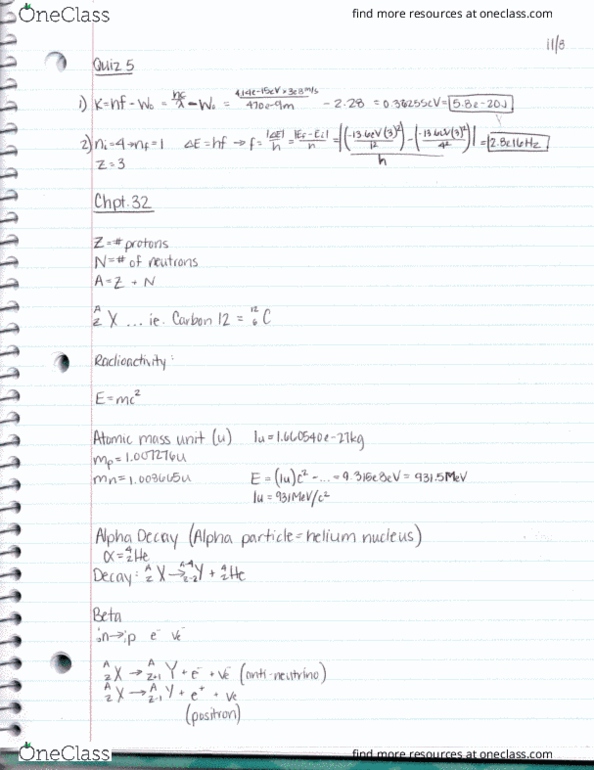 OneClass find more resources at oneclass.com
11/8
Quiz 5
1) K=hf - W₀ = hc/λ - W₀ = 4.14e-15eV × 3e8 m/s / 470e-9m - 2.28 = 0.36255eV = 5.8e-20J
2) nᵢ=4→n_f=1 ΔE=hf → f= |ΔE|/h = |E_f - Eᵢ|/h = |(-13.6eV(3)²/1²) - (-13.6eV(3)²/4²)| / h = 2.8e16Hz
Z=3
Chpt. 32
Z=# protons
N=# of neutrons
A=Z + N
ᴬ_Z X ... ie. Carbon 12 = ¹²₆C
Radioactivity:
E=mc²
Atomic mass unit (u) 1u=1.660540e-27kg
mp=1.007276u
mn=1.008665u E = (1u)c² - ... = 9.315e8eV = 931.5MeV
1u = 931MeV/c²
Alpha Decay (Alpha particle=helium nucleus)
α=⁴₂He
Decay: ᴬ_Z X → ᴬ⁻⁴_Z-2 Y + ⁴₂He
Beta
n→p e⁻ ve⁻
ᴬ_Z X → ᴬ_Z+1 Y + e⁻ + ve⁻ (anti-neutrino)
ᴬ_Z X → ᴬ_Z-1 Y + e⁺ + ve
(positron)
OneClass find more resources at oneclass.com